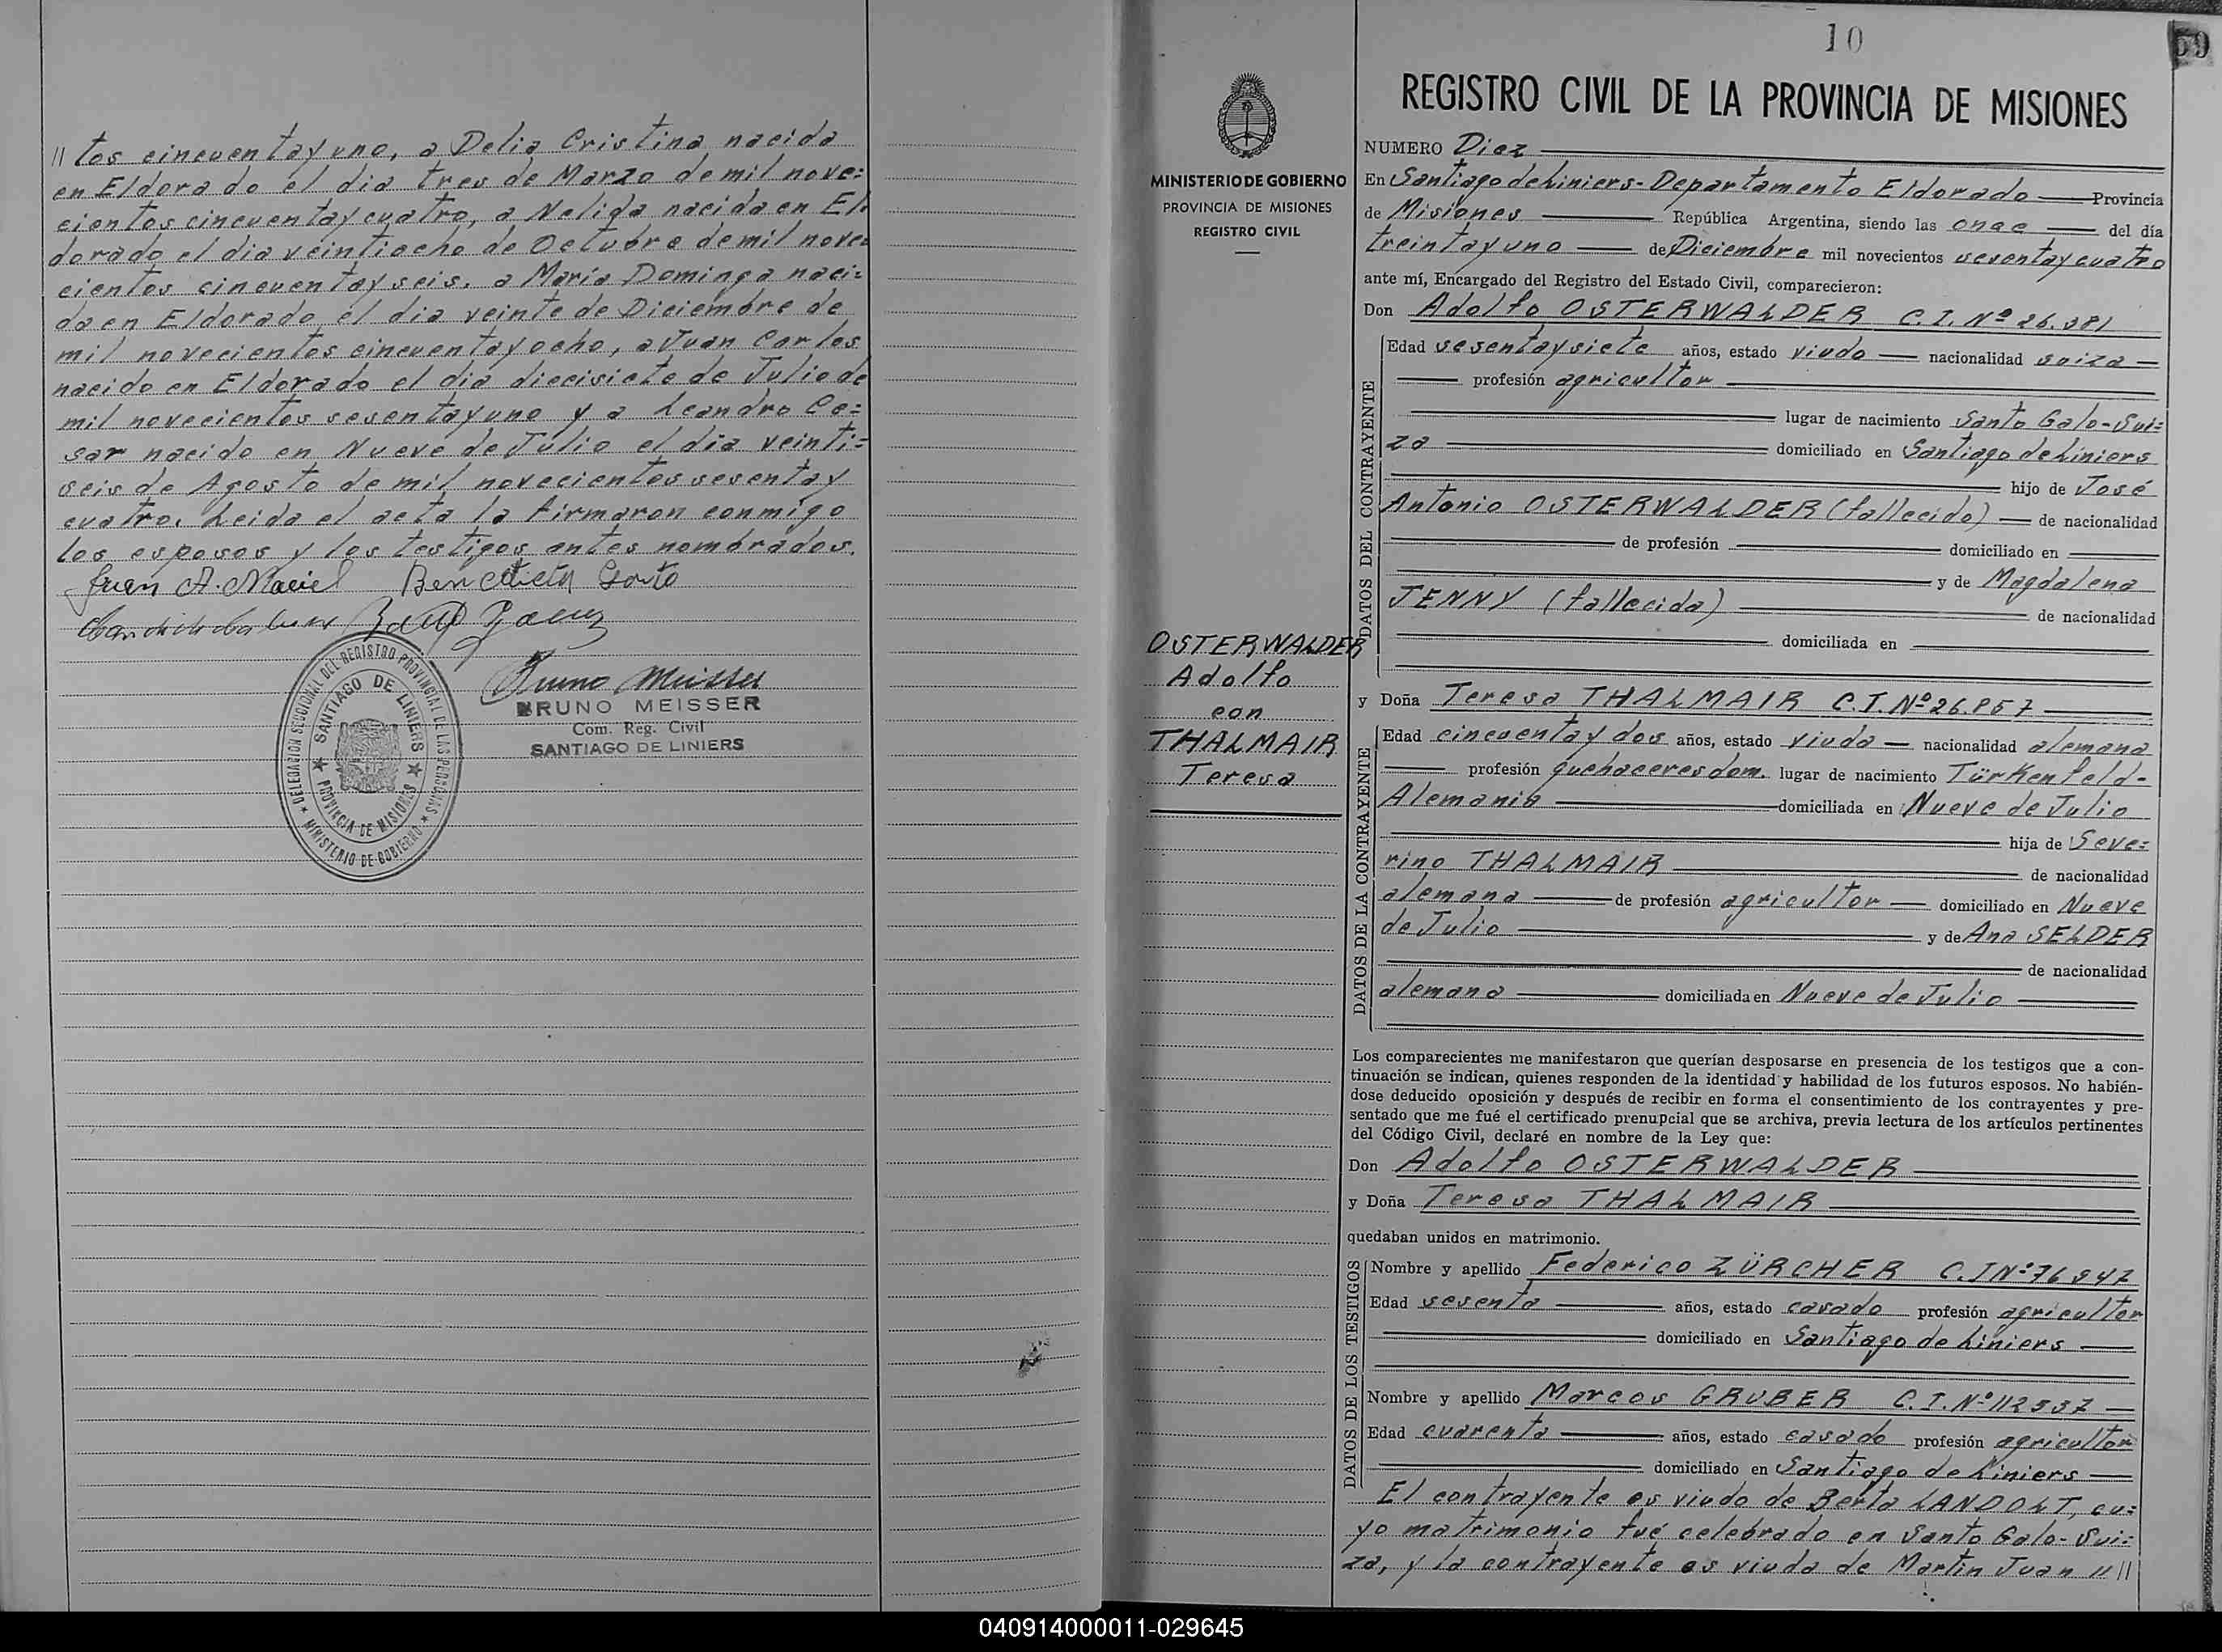 // tos cincuentayuno, a Delia Cristina nacida
en Eldorado el dia tres de Marzo de mil nove=
cientos cincuentaycuatro, a Nelida nacida en El
dorado el dia veintiocho de Octubre de mil nove=
cientos cincuentayseis, a María Dominga naci=
da en Eldorado el dia veinte de Diciembre de
mil novecientos cincuentayocho, a Juan Carlos
nacido en Eldorado el dia diecisiete de Julio de
mil novecientos sesentayuno y a Leandro Ce=
sar nacido en Nueve de Julio el dia veinti=
seis de Agosto de mil novecientos sesentay
cuatro. Leida el acta la firmaron conmigo
los esposos y los testigos antes nombrados.
Juan A. Maciel
Bruno Meisser
BRUNO MEISSER
Com. Reg. Civil
SANTIAGO DE LINIERS
★ DELEGACION SECCIONAL DEL REGISTRO PROVINCIAL DE LAS PERSONAS ★ MINISTERIO DE GOBIERNO
★ SANTIAGO DE LINIERS ★ PROVINCIA DE MISIONES
10
59
MINISTERIO DE GOBIERNO
PROVINCIA DE MISIONES
REGISTRO CIVIL
OSTERWALDER
Adolfo
con
THALMAIR
Teresa
REGISTRO CIVIL DE LA PROVINCIA DE MISIONES
NUMERO Diez
En Santiago de Liniers- Departamento Eldorado Provincia
de Misiones República Argentina, siendo las once del día
treintayuno de Diciembre mil novecientos sesentaycuatro
ante mí, Encargado del Registro del Estado Civil, comparecieron:
Don Adolfo OSTERWALDER C.I. Nº 26.381
DATOS DEL CONTRAYENTE
Edad sesentaysiete años, estado viudo nacionalidad suiza
profesión agricultor
lugar de nacimiento Santo Galo-Sui=
za domiciliado en Santiago de Liniers
hijo de José
Antonio OSTERWALDER (fallecido) de nacionalidad
de profesión domiciliado en
y de Magdalena
JENNY (fallecida) de nacionalidad
domiciliada en
y Doña Teresa THALMAIR C.I. Nº 26.857
DATOS DE LA CONTRAYENTE
Edad cincuentay dos años, estado viuda nacionalidad alemana
profesión quehaceres dom. lugar de nacimiento Türkenfeld-
Alemania domiciliada en Nueve de Julio
hija de Seve=
rino THALMAIR de nacionalidad
alemana de profesión agricultor domiciliado en Nueve
de Julio y de Ana SELDER
de nacionalidad
alemana domiciliada en Nueve de Julio
Los comparecientes me manifestaron que querían desposarse en presencia de los testigos que a con-
tinuación se indican, quienes responden de la identidad y habilidad de los futuros esposos. No habién-
dose deducido oposición y después de recibir en forma el consentimiento de los contrayentes y pre-
sentado que me fué el certificado prenupcial que se archiva, previa lectura de los artículos pertinentes
del Código Civil, declaré en nombre de la Ley que:
Don Adolfo OSTERWALDER
y Doña Teresa THALMAIR
quedaban unidos en matrimonio.
DATOS DE LOS TESTIGOS
Nombre y apellido Federico ZÜRCHER C.I Nº 76947
Edad sesenta años, estado casado profesión agricultor
domiciliado en Santiago de Liniers
Nombre y apellido Marcos GRUBER C.I. Nº 112537
Edad cuarenta años, estado casado profesión agricultor
domiciliado en Santiago de Liniers
El contrayente es viudo de Berta LANDOLT, cu=
yo matrimonio fué celebrado en Santo Galo- Sui=
za, y la contrayente es viuda de Martin Juan //
040914000011-029645